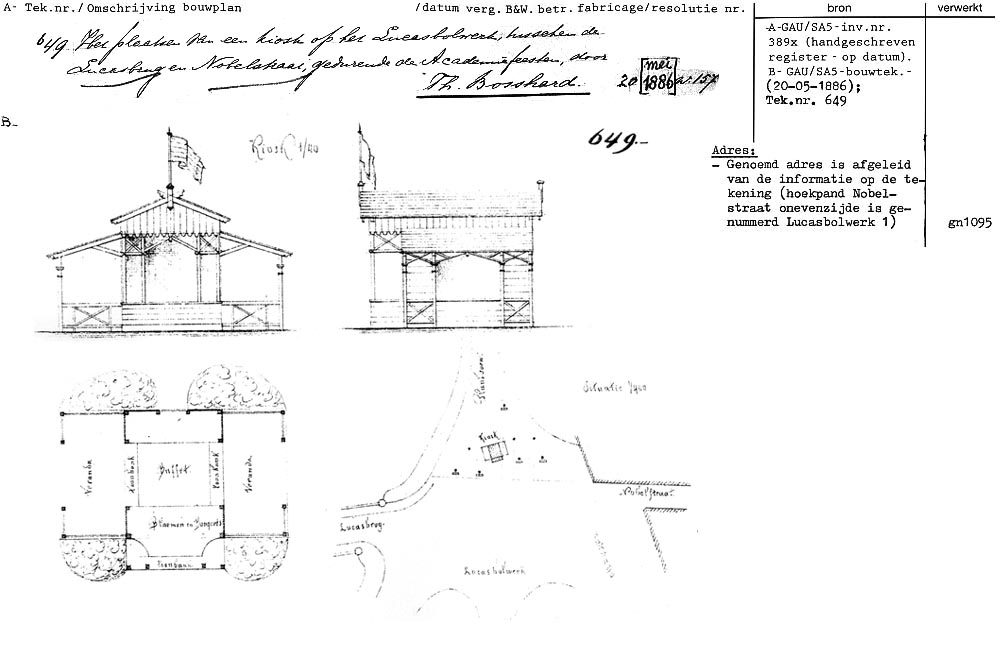 A- Tek.nr./Omschrijving bouwplan
/datum verg. B&W. betr. fabricage/resolutie nr.
bron
verwerkt
649. Het plaatsen van een kiosk op het Lucasbolwerk, tusschen de
Lucasbrug en Nobelstraat, gedurende de Academiefeesten, door
Th. Bosshard.
20 mei 1886 nr. 157
-A-GAU/SA5-inv.nr.
389x (handgeschreven
register - op datum).
B- GAU/SA5-bouwtek.-
(20-05-1886);
Tek.nr. 649
B-
Kiosk 1/40
649.-
Adres:
- Genoemd adres is afgeleid
van de informatie op de te-
kening (hoekpand Nobel-
straat onevenzijde is ge-
nummerd Lucasbolwerk 1)
gn1095
Situatie 1/400
Plantsoen
Kiosk
Nobelstraat
Lucasbrug
Lucasbolwerk
Veranda
Toonbank
Buffet
Toonbank
Veranda
Bloemen en Bouquets
Toonbank